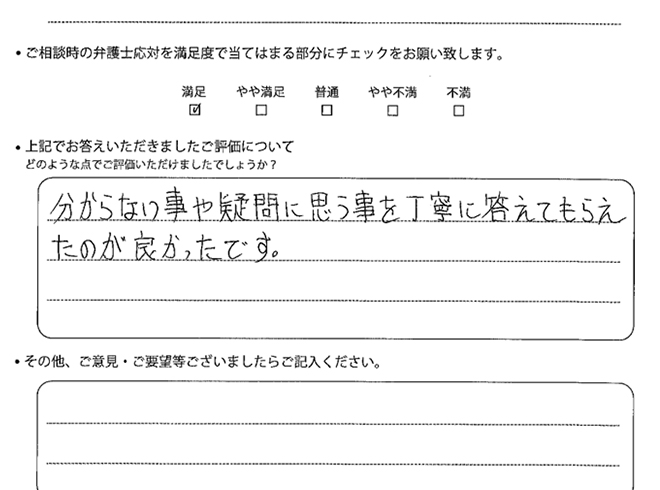 ・ご相談時の弁護士応対を満足度で当てはまる部分にチェックをお願い致します。
満足 やや満足 普通 やや不満 不満
☑ ☐ ☐ ☐ ☐
・上記でお答えいただきましたご評価について
どのような点でご評価いただけましたでしょうか？
分からない事や疑問に思う事を丁寧に答えてもらえ
たのが良かったです。
・その他、ご意見・ご要望等ございましたらご記入ください。